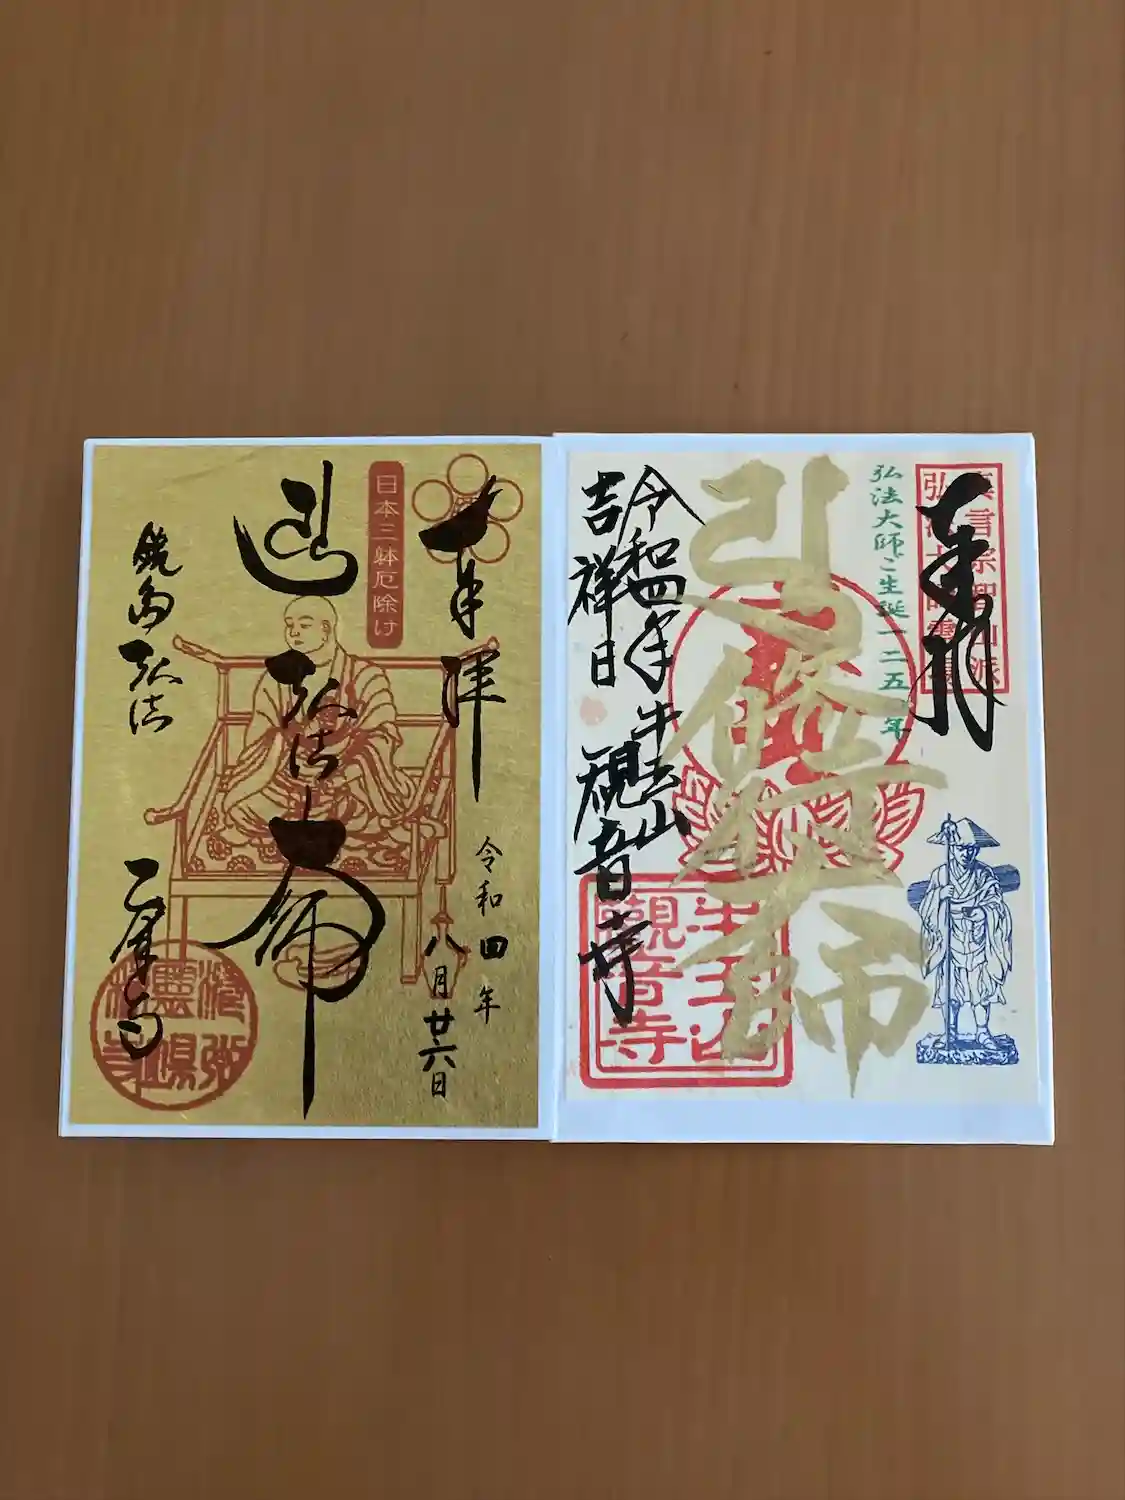 奉拝
真言宗智山派
弘法大師霊場
弘法大師ご生誕一二五〇年
弘法大師
令和四年
吉祥日
牛玉山
観音寺
牛玉山
観音寺
奉拝
令和四年
八月廿六日
日本三躰厄除け
弘法大師
鏡島弘法
乙津寺